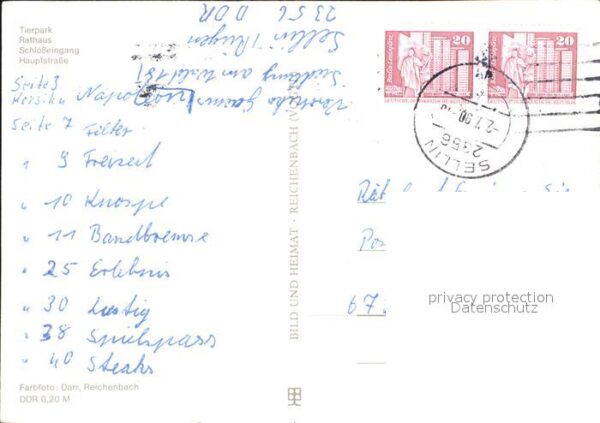 Tierpark
Rathaus
Schloßeingang
Hauptstraße
2356
DDR
Sellin / Rügen
Siedlung am Wald 18
Seite 3
Korsika Napoleon
Seite 7 Filter
" 9 Freizeit
" 10 Knospe
" 11 Bandbremse
" 25 Erlebnis
" 30 Lustig
" 38 Spielspass
" 40 Steaks
Farbfoto: Darr, Reichenbach
DDR 0,20 M
BILD UND HEIMAT · REICHENBACH (V
20
20
SELLIN
2356
-2.7.90
67
privacy protection
Datenschutz